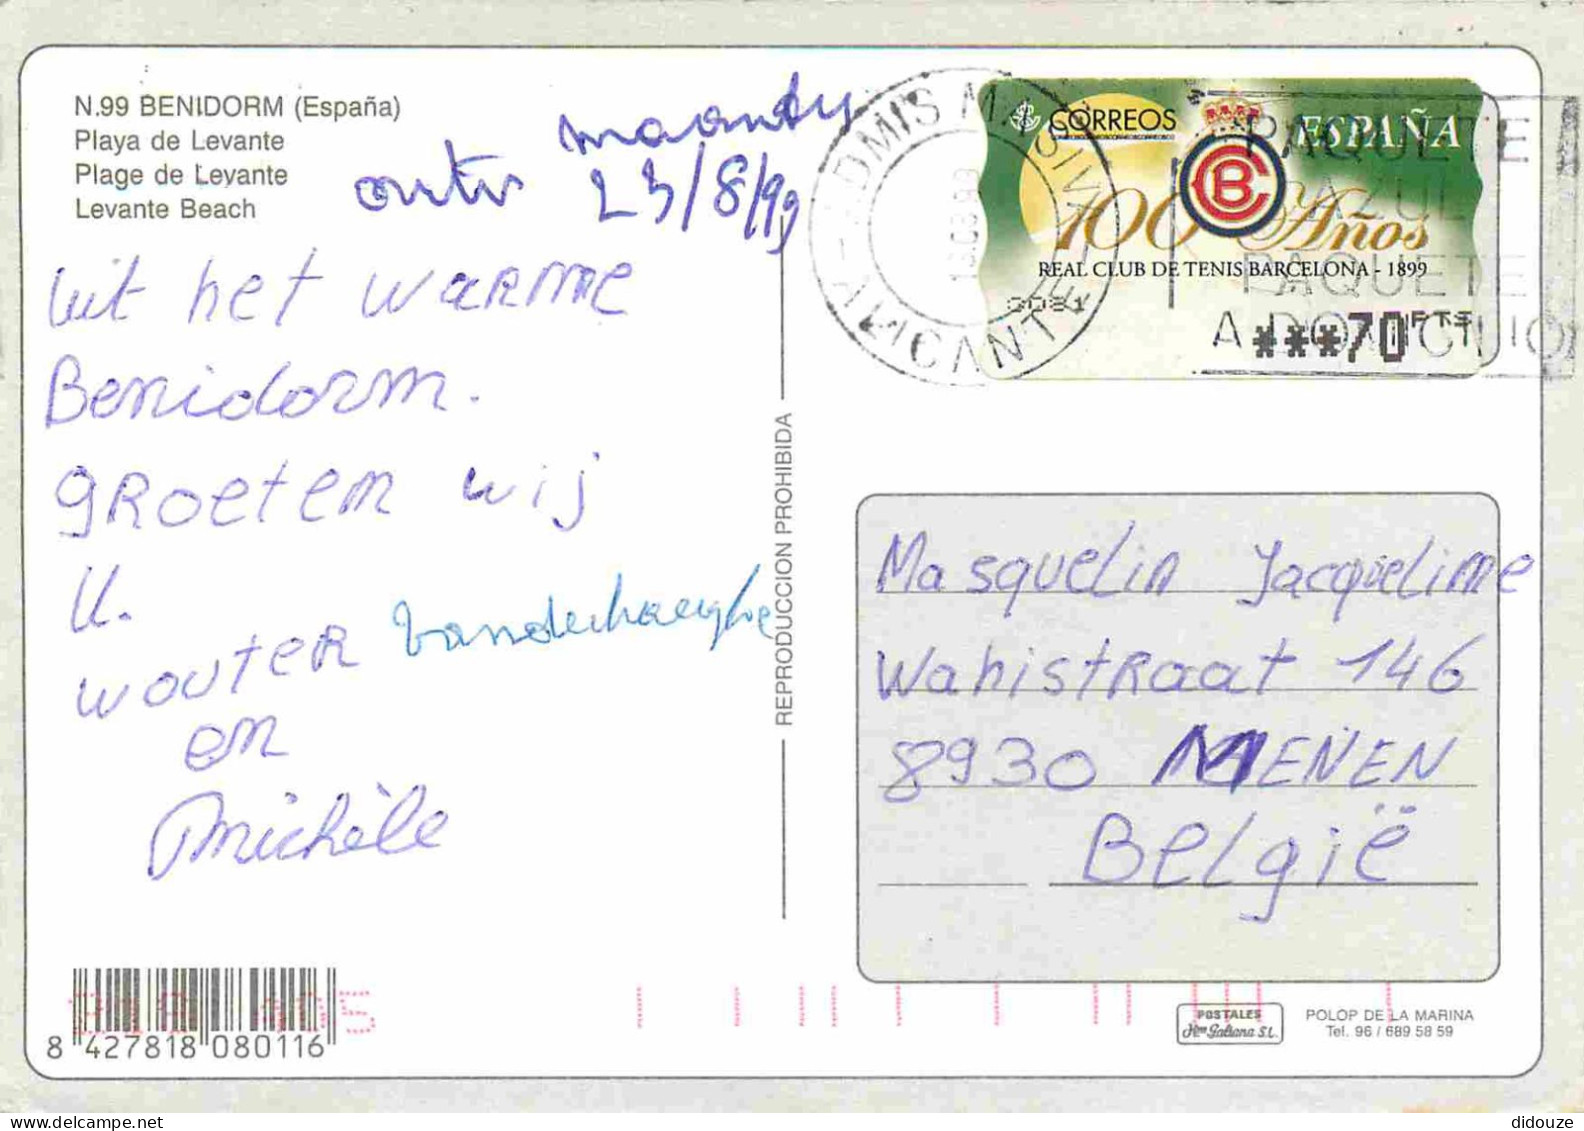 N.99 BENIDORM (España)
Playa de Levante
Plage de Levante
Levante Beach
maandy
23/8/99
Uit het warme
Benidorm.
groeten wij
U.
Wouter Vanderhaeghe
en
Michèle
REPRODUCCION PROHIBIDA
ADMIS MASIVA
ALICANTE
CORREOS
ESPAÑA
100 Años
REAL CLUB DE TENIS BARCELONA - 1899
***70 PTS
PAQUETE
AZUL
PAQUETE
A DOMICILIO
Masquelin Jacqueline
Wahistraat 146
8930 MENEN
België
8 427818 080116
POSTALES
Hnos Galiana S.L.
POLOP DE LA MARINA
Tel. 96 / 689 58 59
didouze